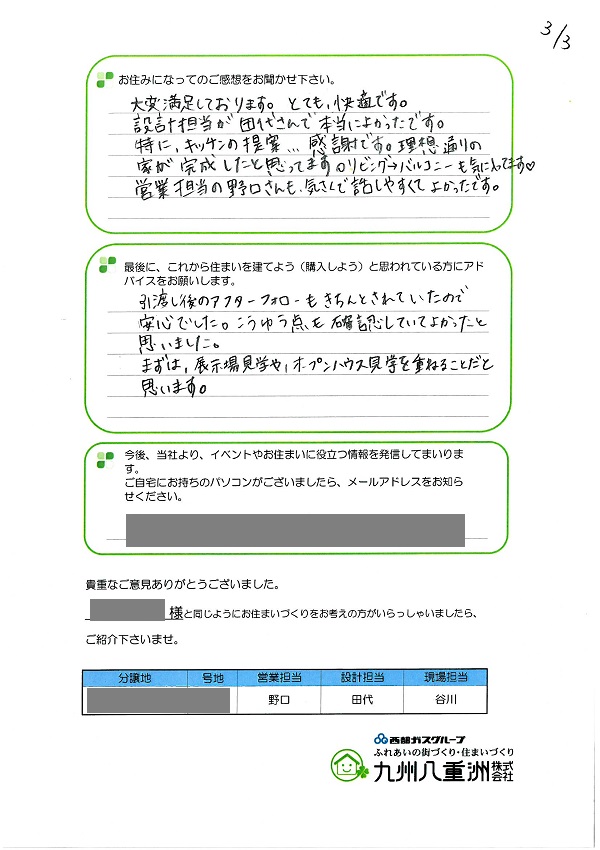 3/3
お住みになってのご感想をお聞かせ下さい。
大変満足しております。とても、快適です。
設計担当が田代さんで本当によかったです。
特に、キッチンの提案…感謝です。理想通りの
家が完成したと思ってます。リビング→バルコニーも気に入ってます♡
営業担当の野口さんも、気さくで話しやすくてよかったです。
最後に、これから住まいを建てよう(購入しよう)と思われている方にアド
バイスをお願いします。
引渡し後のアフターフォローもきちんとされていたので
安心でした。こうゆう点も確認していてよかったと
思いました。
まずは、展示場見学や、オープンハウス見学を重ねることだと
思います。
今後、当社より、イベントやお住まいに役立つ情報を発信してまいりま
す。
ご自宅にお持ちのパソコンがございましたら、メールアドレスをお知ら
せください。
貴重なご意見ありがとうございました。
様と同じようにお住まいづくりをお考えの方がいらっしゃいましたら、
ご紹介下さいませ。
分譲地 号地 営業担当 設計担当 現場担当
野口 田代 谷川
西部ガスグループ
ふれあいの街づくり・住まいづくり
九州八重洲株式会社